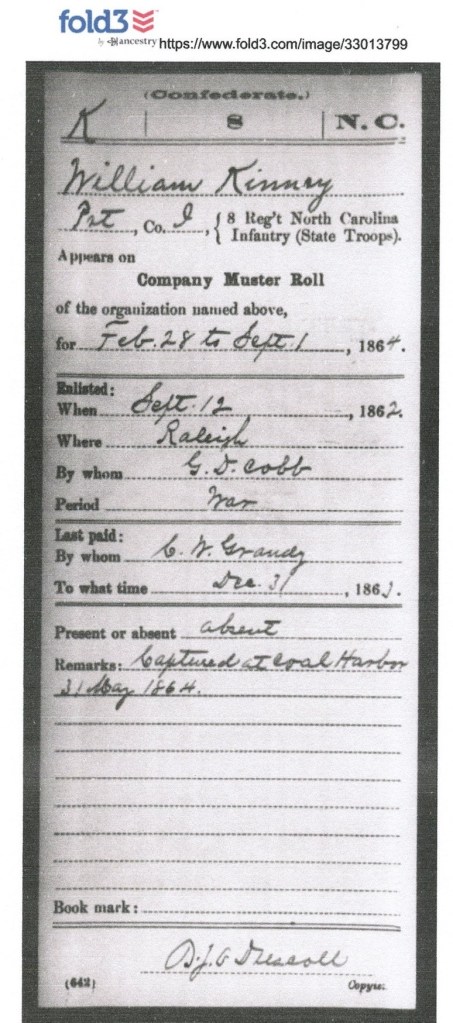 fold3
by Ancestry https://www.fold3.com/image/33013799
(Confederate.)
K | 8 | N. C.
William Kinney
Pvt, Co. I, { 8 Reg't North Carolina
Infantry (State Troops).
Appears on
Company Muster Roll
of the organization named above,
for Feb. 28 to Sept. 1, 1864.
Enlisted:
When Sept. 12, 1862.
Where Raleigh
By whom G. D. Cobb
Period War
Last paid:
By whom C. W. Grandy
To what time Dec. 31, 1863.
Present or absent absent
Remarks: Captured at Coal Harbor
31 May 1864.
Book mark:
Driscoll
(642) Copyist.